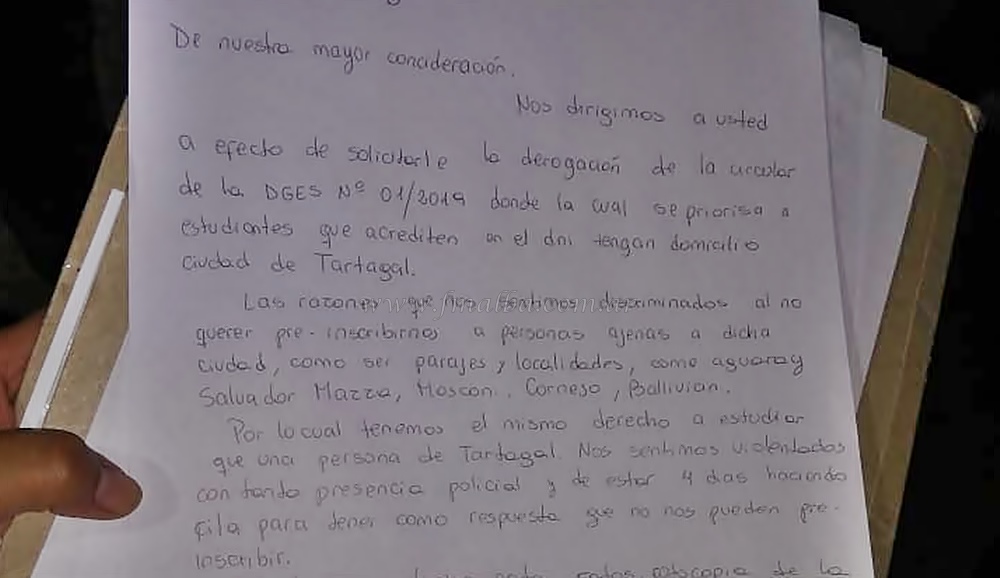 De nuestra mayor concideración.
Nos dirigimos a usted
a efecto de solicitarle la derogación de la circular
de la DGES Nº 01/2019 donde la cual se priorisa a
estudiantes que acrediten en el dni tengan domicilio
ciudad de Tartagal.
Las razones que nos sentimos discriminados al no
querer pre-inscribirnos a personas ajenas a dicha
ciudad, como ser parajes y localidades, como aguaray
Salvador Mazza, Moscon, Cornejo, Ballivian.
Por lo cual tenemos el mismo derecho a estudiar
que una persona de Tartagal. Nos sentimos violentados
con tanda presencia policial y de estar 4 dias haciendo
fila para tener como respuesta que no nos pueden pre-
inscribir.
fotocopia de la